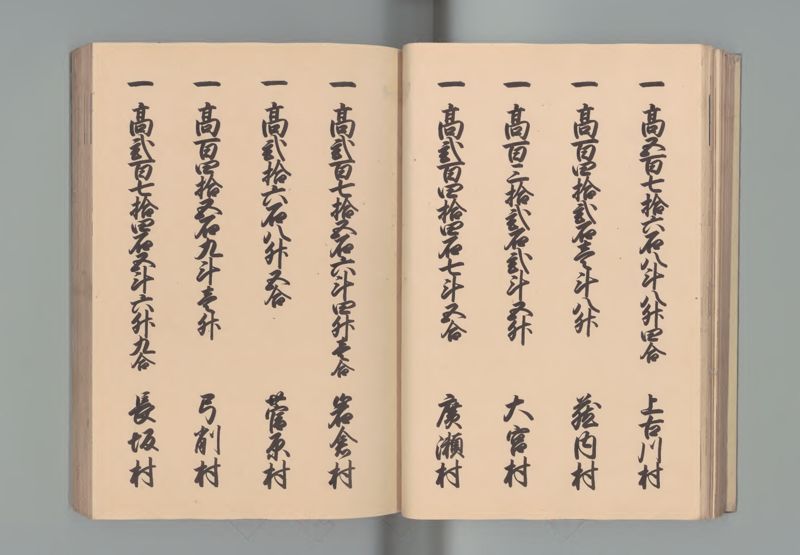 一 高五百七拾六石八斗八升四合 上古川村
一 高百四拾弐石壱斗八升 蔵内村
一 高百三拾弐石弐斗五升 大宮村
一 高弐百四拾四石七斗五合 廣瀬村
一 高弐百七拾五石六斗四升壱合 岩倉村
一 高弐拾六石八升五合 菅原村
一 高百四拾五石九斗壱升 弓削村
一 高弐百七拾四石五斗六升九合 長坂村